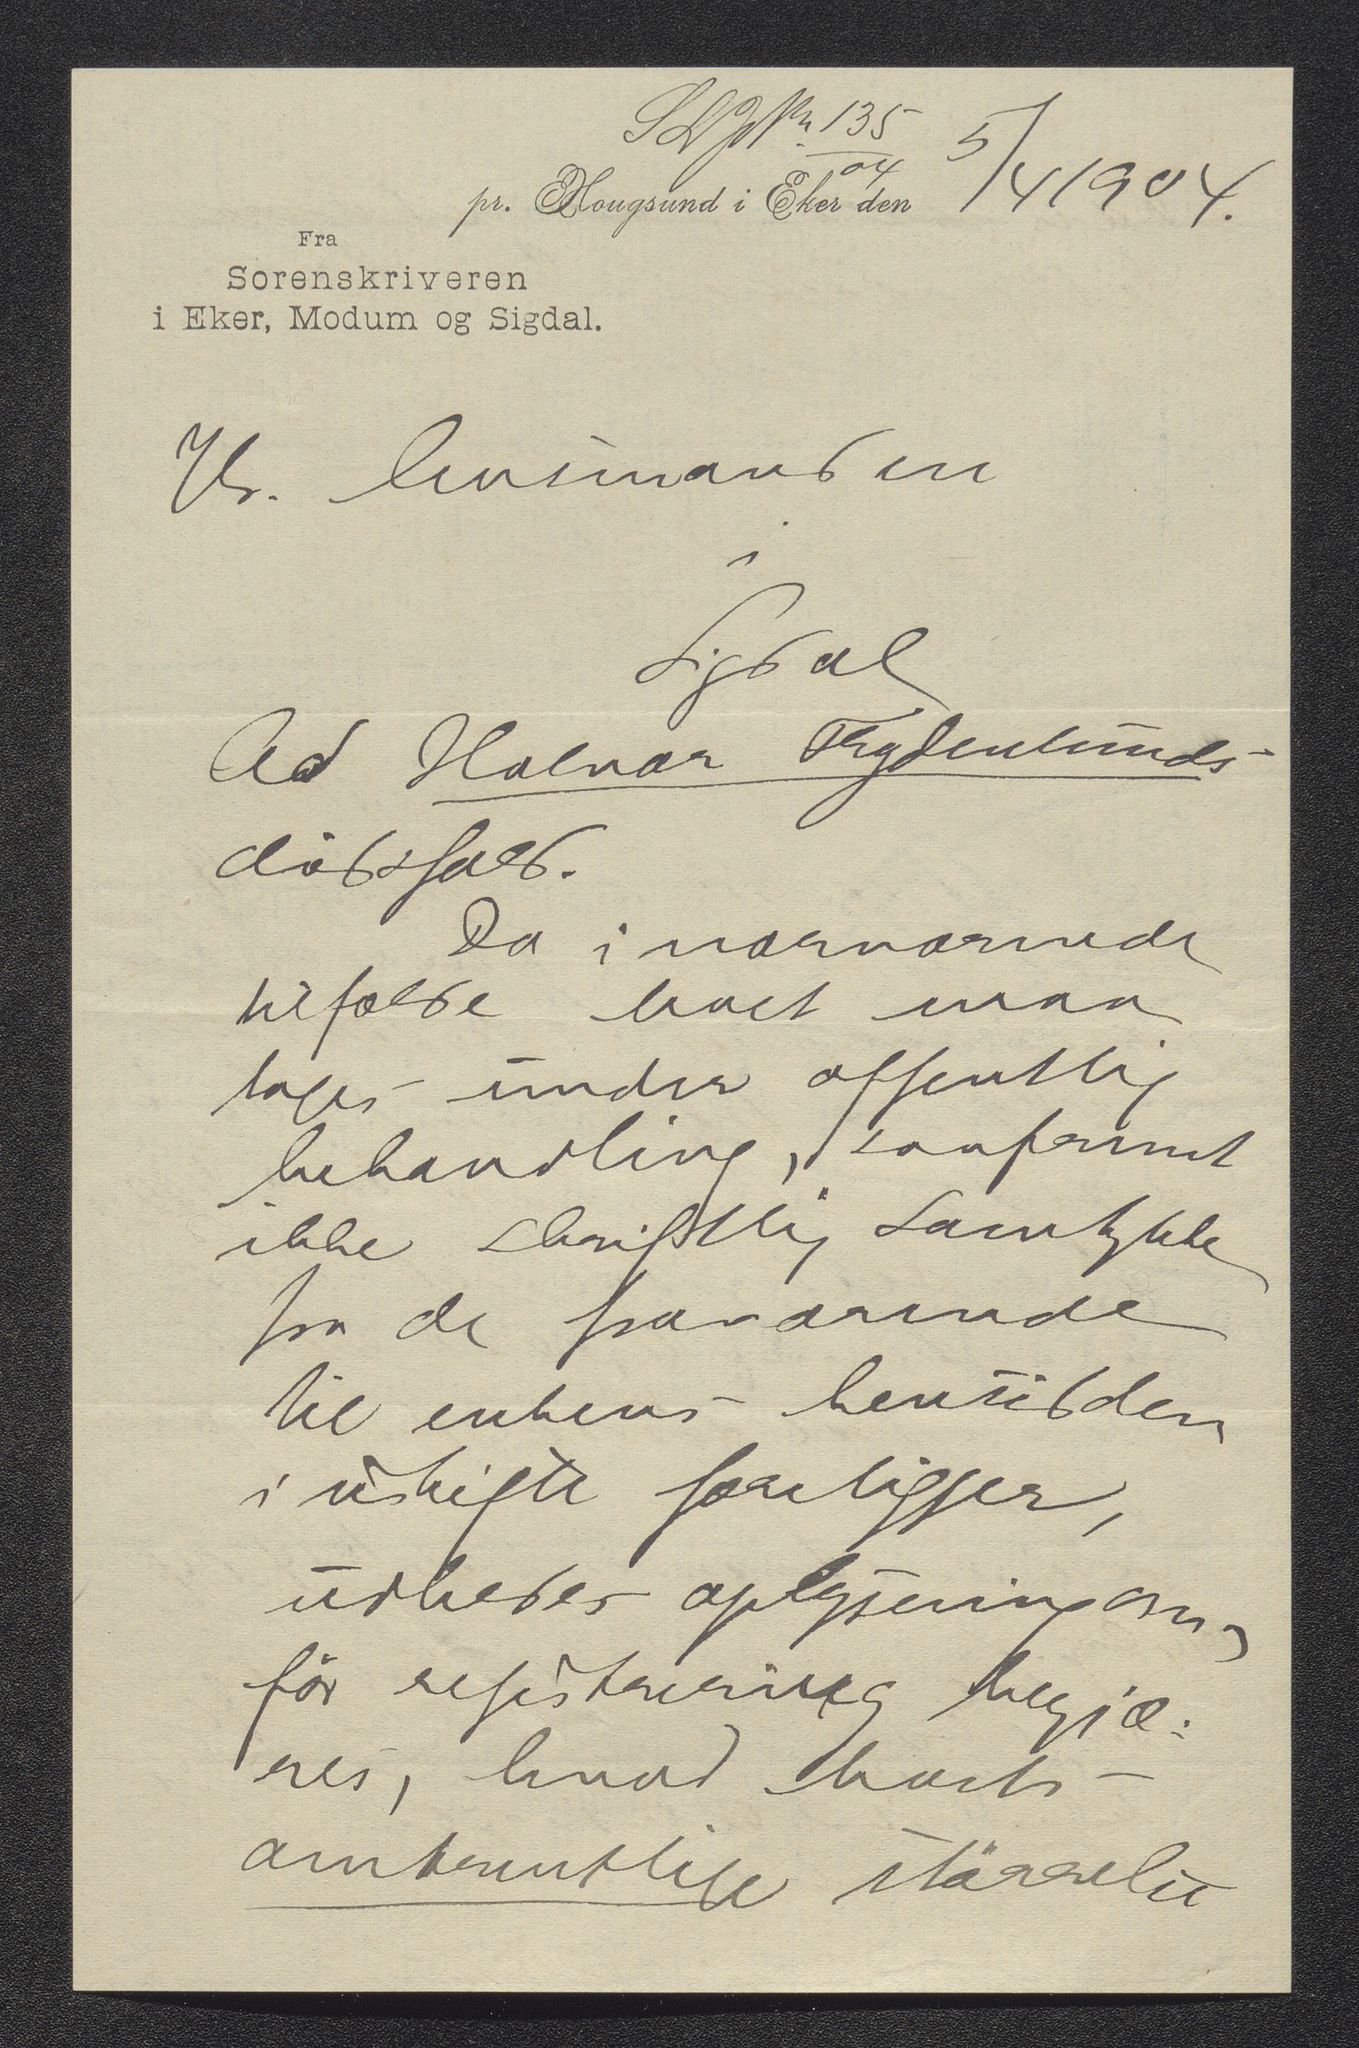 Nr. 135
04
pr. Hougsund i Eker den 5/4 1904.
Fra
Sorenskriveren
i Eker, Modum og Sigdal.
Hr. Lensmanden
i
Sigdal
Ad Halvor Frydenlunds
dödsfald.
Da i nærværende
tilfælde boet maa
tages under offentlig
behandling, saafremt
ikke skriftlig samtykke
fra de fraværende
til enkens hensidden
i uskifte foreligger,
udbedes oplysning om,
för registrering begjæ-
res, hvad boets
omtrentlige störrelse